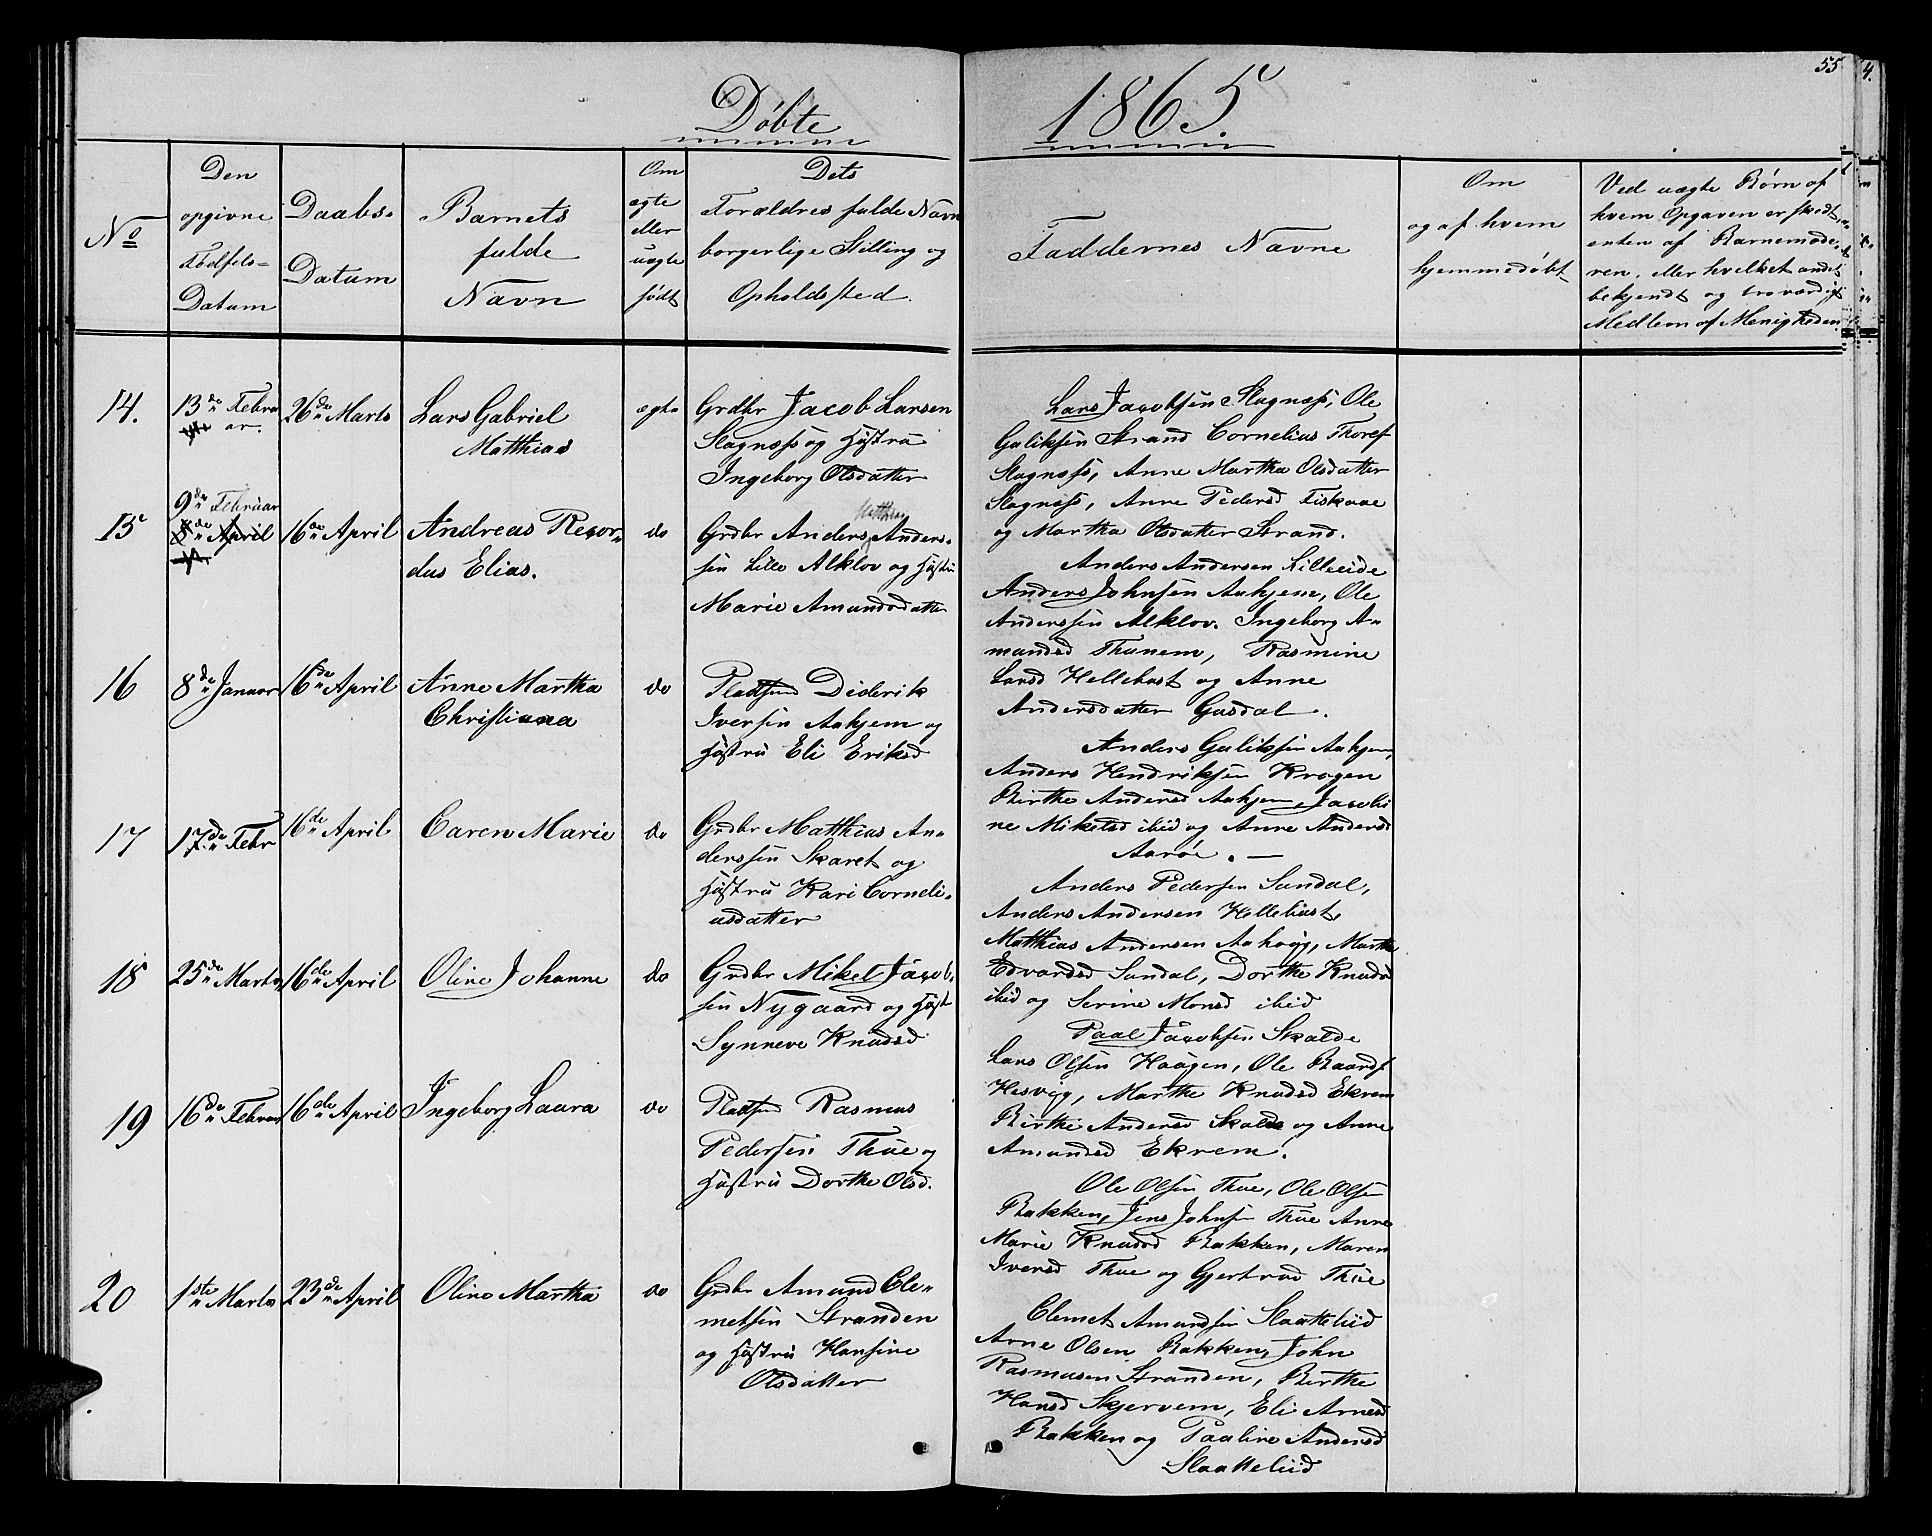 Døbte
1865.
55
4.
No
Den
opgivne
Fødsels-
Datum
Daabs-
Datum
Barnets
fulde
Navn
Om
ægte
eller
uægte
født
Dets
Forældres fulde Navn
borgerlige Stilling og
Opholdsted.
Faddernes Navne
Om
og af hvem
hjemmedøbt
Ved uægte Børn af
hvem Opgaven er skedt,
enten af Barnemode-
ren, eller hvilket andet
bekjendt og troværdigt
Medlem af Menigheden
14.
13de Febru
ar.
26de Marts
Lars Gabriel
Matthias
ægte
Grdbr Jacob Larsen
Slagnæss og Hustru
Ingeborg Olsdatter
Lars Jacobsen Slagnæss, Ole
Guliksen Strand Cornelius Thores
Slagnæss, Anne Martha Olsdatter
Slagnæss, Anne Pedersd Fiskaae
og Martha Olsdatter Strand.
15
9de Februar
8de April
16de April
Andreas Recor-
dus Elias.
do
Matthias
Grdbr Anders Anders-
sen Lille Alklov og Hustru
Marie Amundsdatter
Anders Andersen Lilleeide
Anders Johnsen Aahjem, Ole
Anderssen Alklov. Ingeborg A-
mundsd Thunem, Rasmine
Larsd Hellebust og Anne
Andersdatter Gusdal.
16
8de Januar
16de April
Anne Martha
Christiana
do
Pladsmd Diderik
Iversen Aahjem og
Hustru Eli Eriksd
Anders Guliksen Aahjem,
Anders Hendriksen Kragen
Birthe Andersd Aahjem, Jacobi
ne Mikelsd ibid og Anne Andersd
Aarøe. —
17
17de Febr
16de April
Caren Marie
do
Grdbr Matthias An-
derssen Skaret og
Hustru Kari Corneli-
usdatter
Anders Pedersen Sundal,
Anders Andersen Hellebust,
Matthias Andersen Aahoug, Marthe
Edvardsd Sundal, Dorthe Knudsd
ibid og Serine Monsd ibid
18
25de Marts
16de April
Oline Johanne
do
Grdbr Mikel Jacob-
sen Nygaard og Hust
Synneve Knudsd
Paal Jacobsen Skalde
Lars Olsen Haagen, Ole Baards
Hesvig, Marthe Knudsd Ekrem
Birthe Andersd Skalde og Anne
Amundsd Ekrem.
19
16de Februar
16de April
Ingeborg Laura
do
Pladsmd Rasmus
Pedersen Thue og
Hustru Dorthe Olsd.
Ole Olsen Thue, Ole Olsen
Bakken, Jens Johnsen Thue Anne
Marie Knudsd Bakken, Maren
Iversd Thue og Gjertrud Thue
20
1ste Marts
23de April
Oline Martha
do
Grdbr Amund Cle-
metsen Stranden
og Hustru Hansine
Olsdatter
Clemet Amundsen Slaattelid
Arne Olsen Bakken, John
Rasmusen Stranden, Birthe
Hansd Skjervem, Eli Arnesd
Bakken og Pauline Andersd
Slaattelid